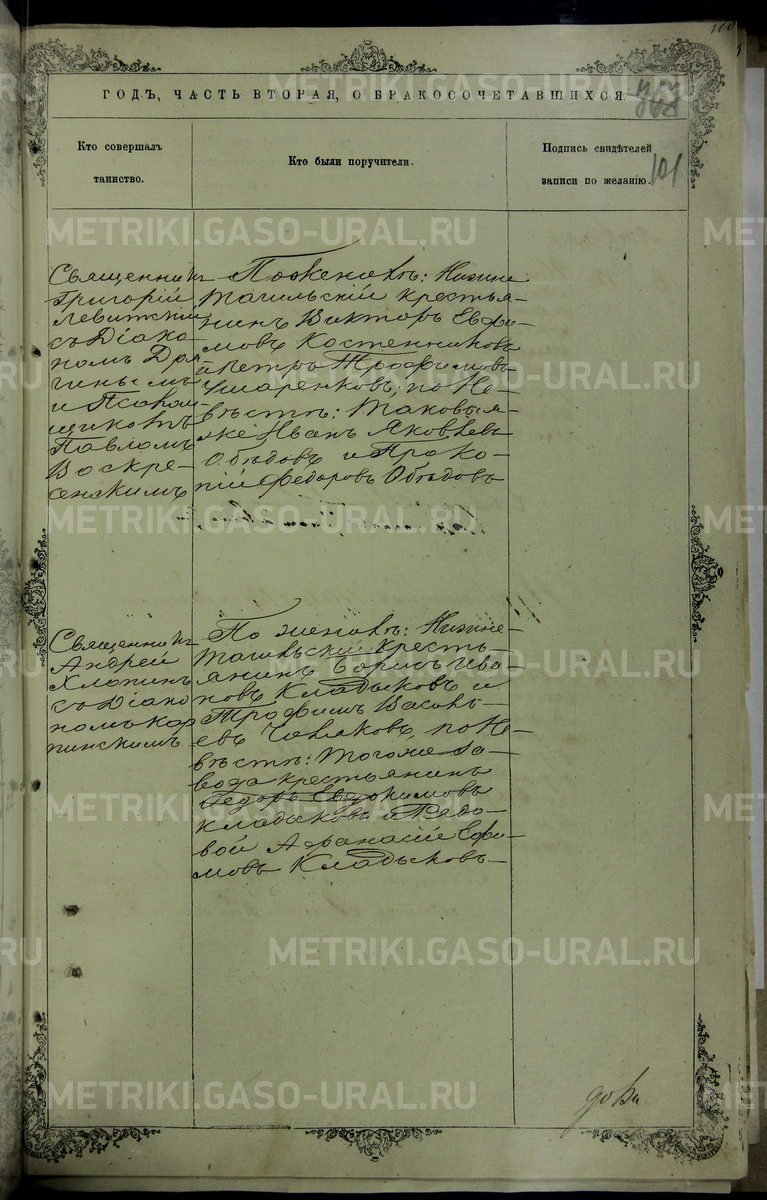 ГОДЪ, ЧАСТЬ ВТОРАЯ, О БРАКОСОЧЕТАВШИХСЯ.
Кто совершалъ
таинство.
Кто были поручители.
Подпись свидѣтелей
записи по желанію.
101
Священникъ
Григорій
Левитскій
съ Діако-
номъ Дря-
гинымъ
и Псалом-
щикомъ
Павломъ
Воскре-
сенскимъ
По женихѣ: Нижне
Тагильскій крестья-
нинъ Викторъ Ефи-
мовъ Костенниковъ
и Петръ Трофимовъ
по Не-
вѣстѣ: таковыя-
же Иванъ Яковлевъ
Обѣдовъ и Проко-
пій Федоровъ Обѣдовъ
Священникъ
Андрей
Хлопинъ
съ Діако
номъ Кар
пинскимъ
По женихѣ: Нижне-
тагильскій Кресть-
янинъ Борисъ Ива-
новъ Кладыковъ и
Трофимъ Василь-
евъ по Не-
вѣстѣ: тогоже за-
вода крестьянинъ
Федоръ Евдокимовъ
Кладыковъ и Рядо-
вой Афанасій Ефи-
мовъ Кладыковъ.
METRIKI.GASO-URAL.RU